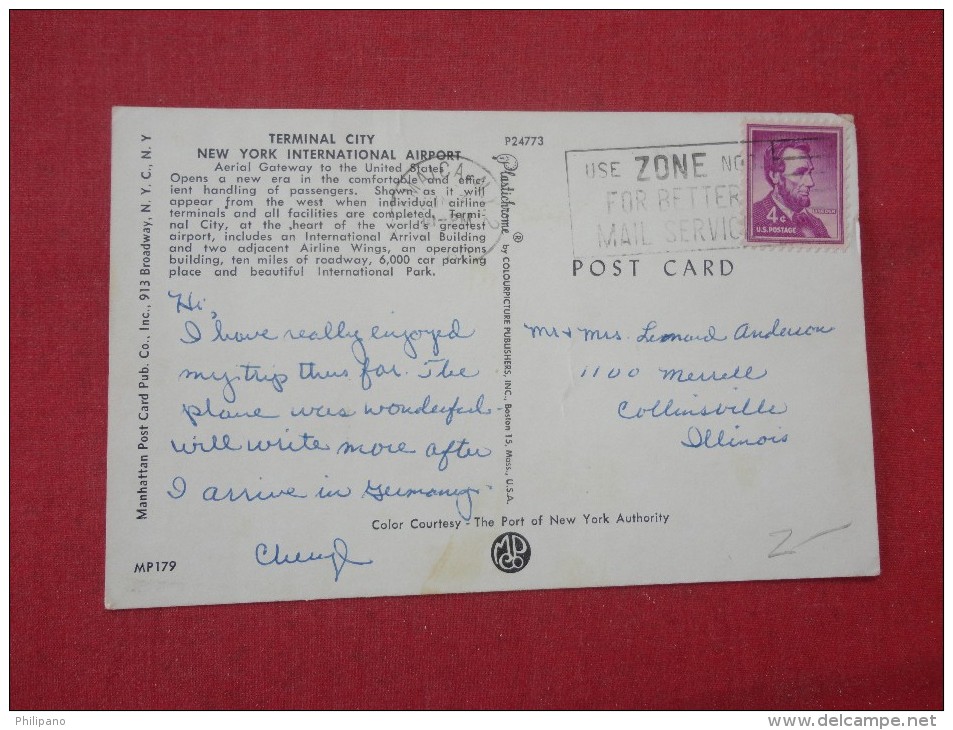 TERMINAL CITY
NEW YORK INTERNATIONAL AIRPORT
Aerial Gateway to the United States
Opens a new era in the comfortable and effic-
ient handling of passengers. Shown as it will
appear from the west when individual airline
terminals and all facilities are completed. Termi-
nal City, at the heart of the world's greatest
airport, includes an International Arrival Building
and two adjacent Airline Wings, an operations
building, ten miles of roadway, 6,000 car parking
place and beautiful International Park.
Hi,
I have really enjoyed
my trip thus far. The
plane was wonderful.
will write more after
I arrive in Germany.
Cheryl
MP179
Manhattan Post Card Pub. Co., Inc., 913 Broadway, N. Y. C., N. Y
P24773
Plastichrome ® by COLOURPICTURE PUBLISHERS, INC., Boston 15, Mass., U.S.A.
JAMAICA
USE ZONE NO
FOR BETTER
MAIL SERVIC
4¢
U.S. POSTAGE
POST CARD
Mr + Mrs. Leonard Anderson
1100 Merrell
Collinsville
Illinois
Color Courtesy - The Port of New York Authority
MPCo
2
Philipano
www.delcampe.net